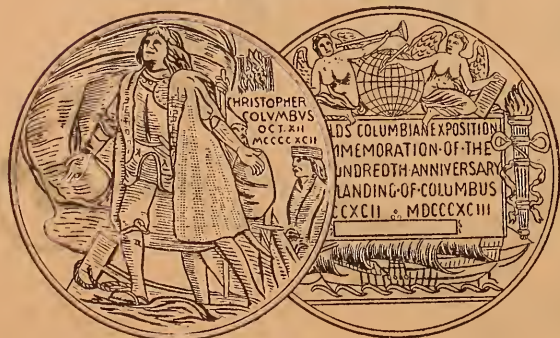 CHRISTOPHER
COLVMBVS
OCT.XII
MCCCCXCII
LDS COLUMBIAN EXPOSITION
MMEMORATION·OF·THE
UNDREDTH·ANNIVERSARY
LANDING·OF·COLUMBUS
CCXCII MDCCCXCIII